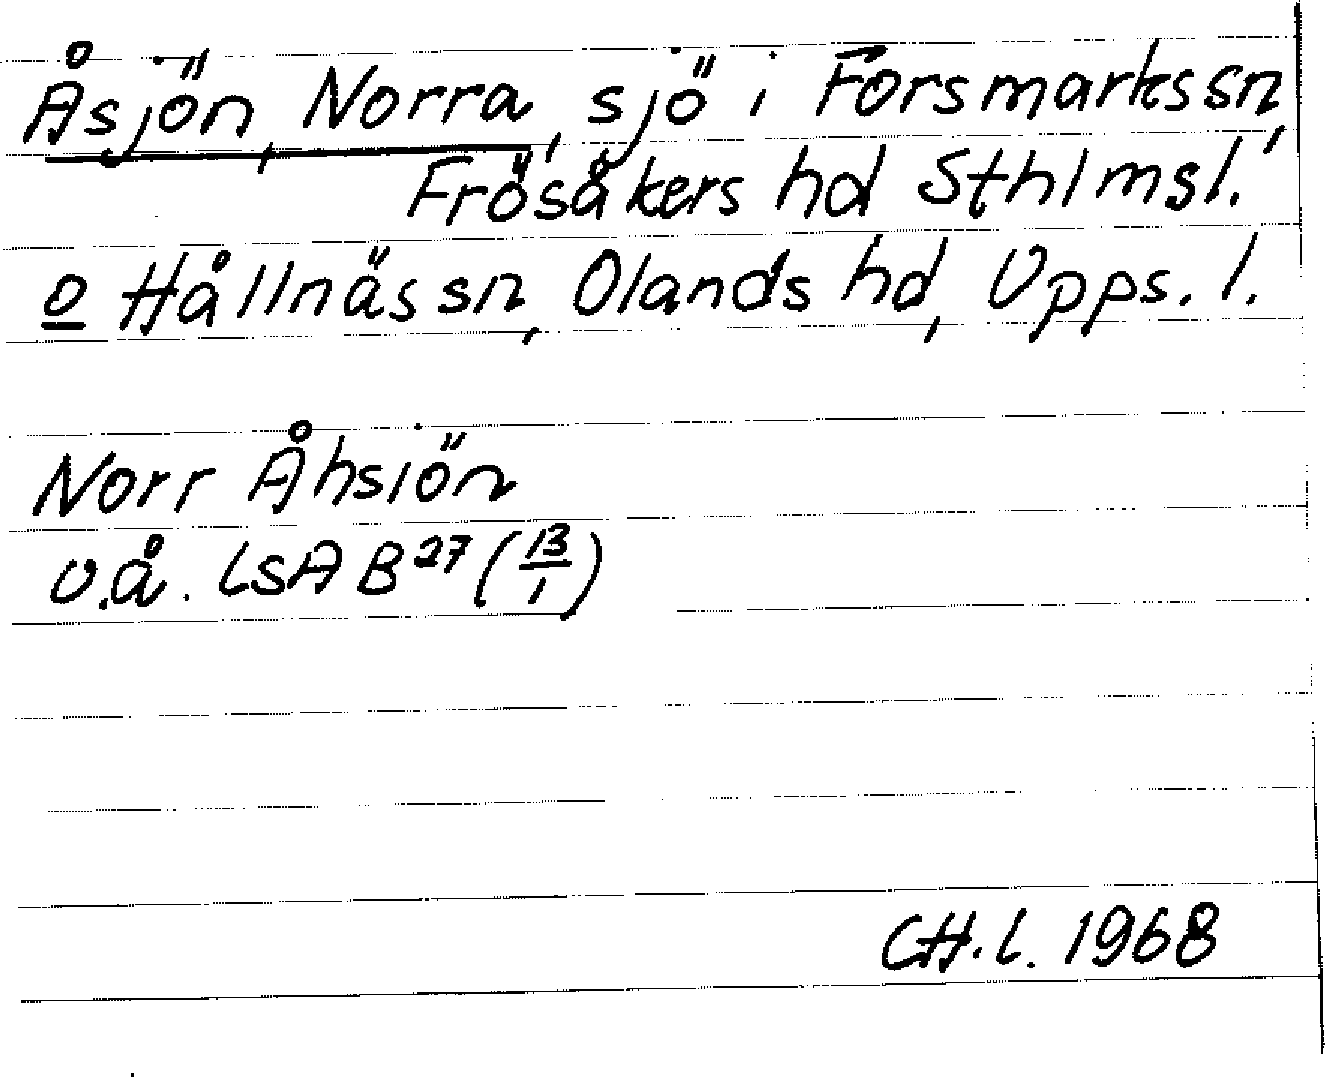 Åsjön, Norra, sjö i Forsmarks sn,
Frösåkers hd Sthlmsl.
o Hållnäs sn, Olands hd, Upps. l.
Norr Åhsiön
u.å. LSA B27 (13/1)
CH.L. 1968